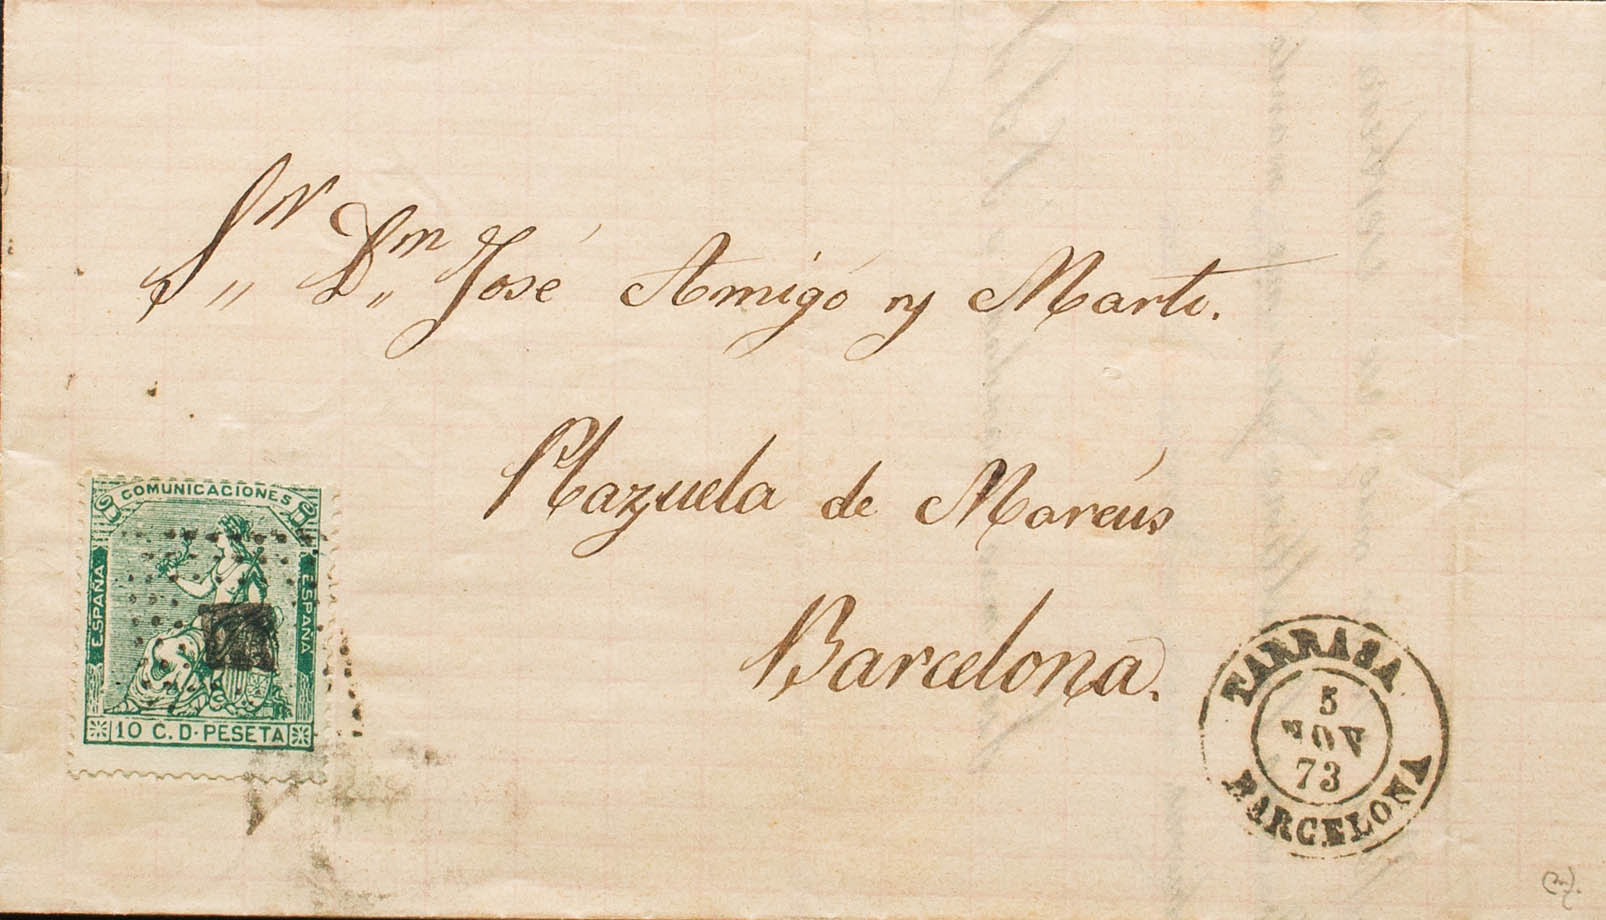 Sr. Dn. José Amigó y Marti.
Plazuela de Marcús
Barcelona.
COMUNICACIONES
ESPAÑA
ESPAÑA
10 C. D. PESETA
TARRASA
5
NOV
73
BARCELONA